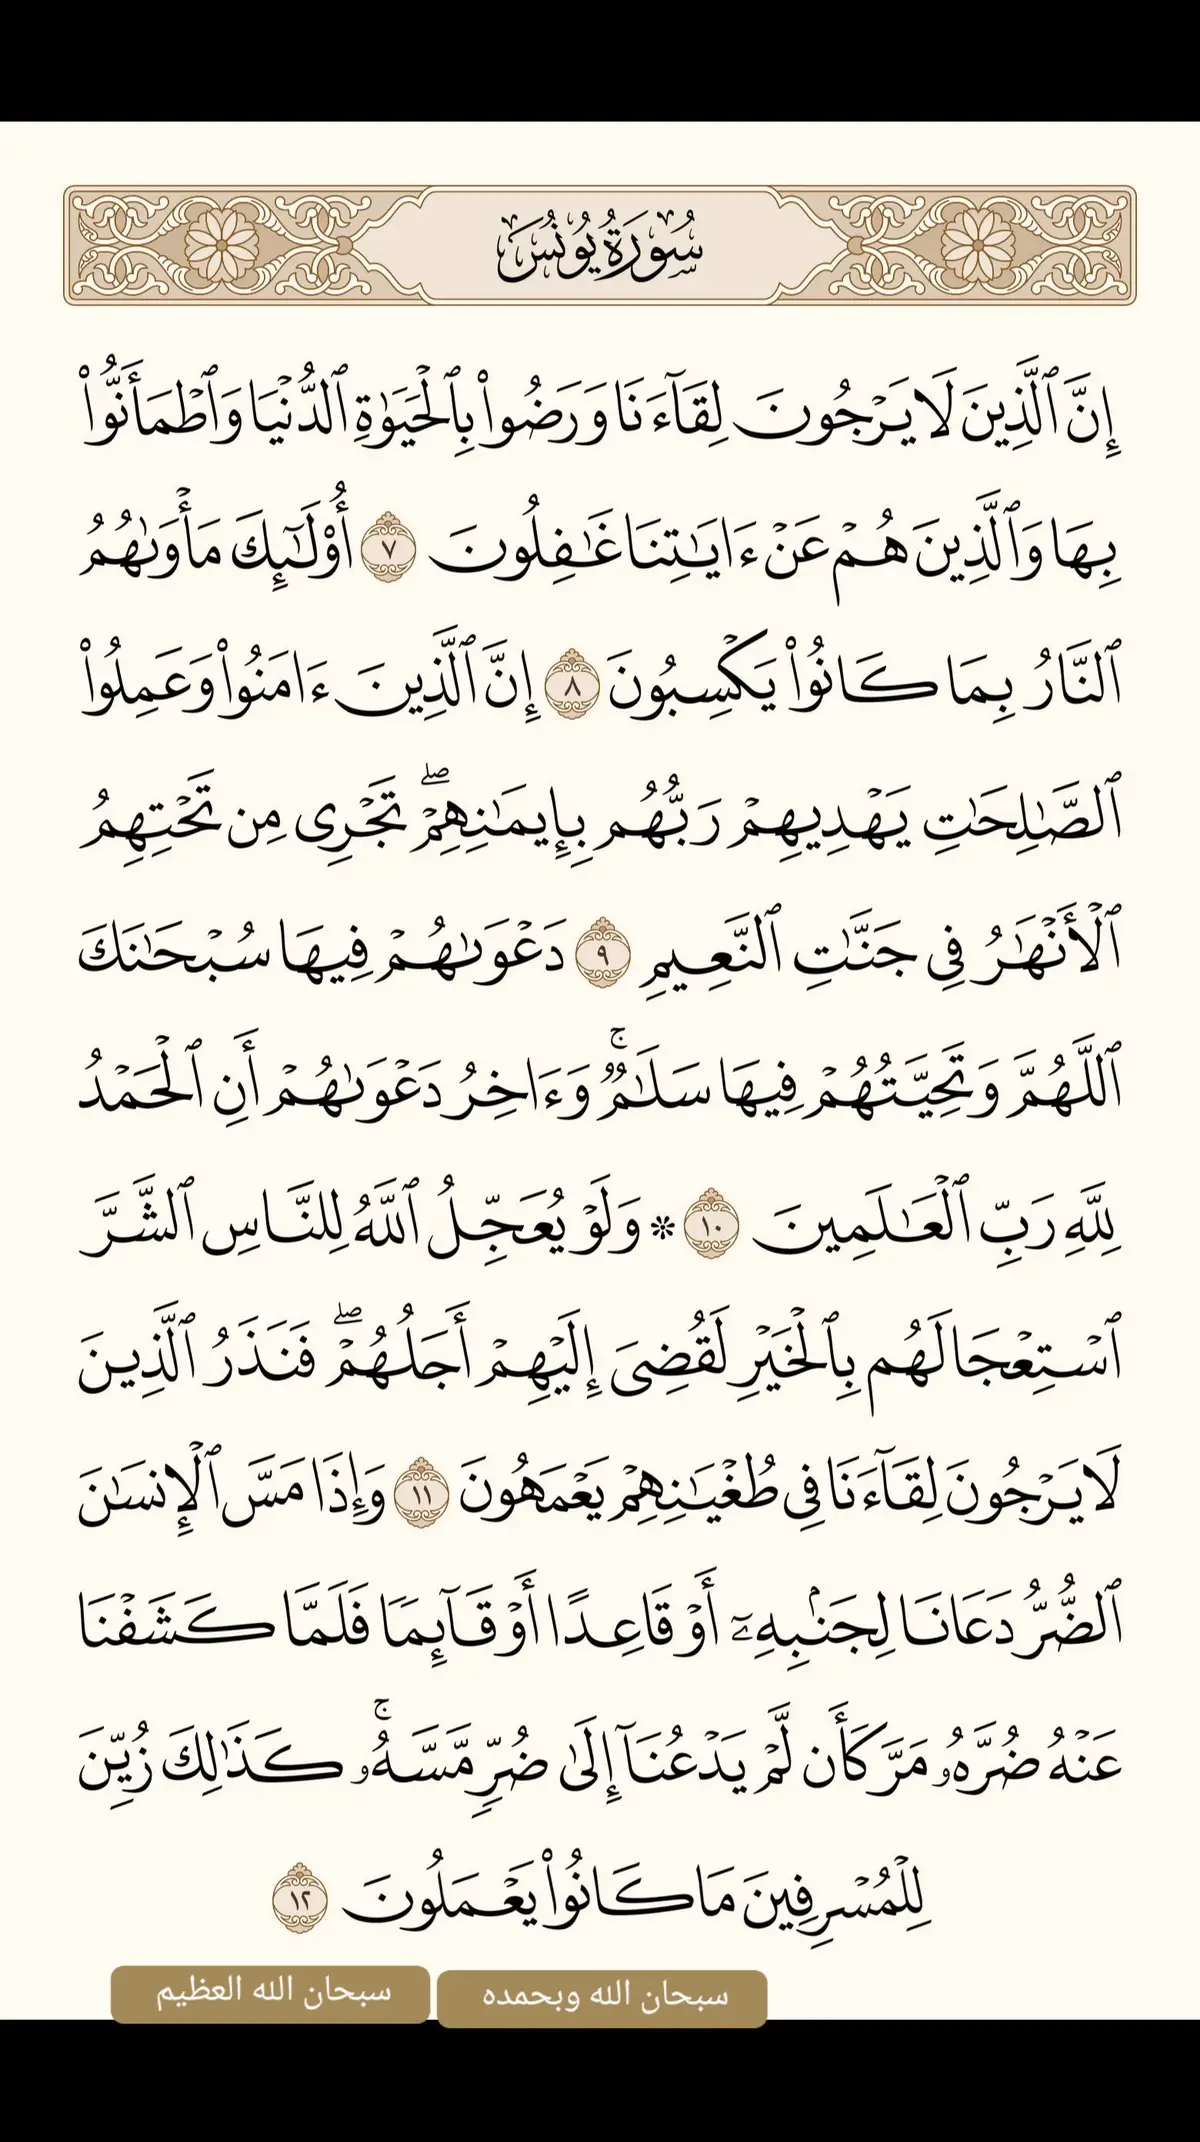 سُورَةُ يُونُسَ
إِنَّ ٱلَّذِينَ لَا يَرۡجُونَ لِقَآءَنَا وَرَضُواْ بِٱلۡحَيَوٰةِ ٱلدُّنۡيَا وَٱطۡمَأَنُّواْ
بِهَا وَٱلَّذِينَ هُمۡ عَنۡ ءَايَٰتِنَا غَٰفِلُونَ ٧ أُوْلَٰٓئِكَ مَأۡوَىٰهُمُ
ٱلنَّارُ بِمَا كَانُواْ يَكۡسِبُونَ ٨ إِنَّ ٱلَّذِينَ ءَامَنُواْ وَعَمِلُواْ
ٱلصَّٰلِحَٰتِ يَهۡدِيهِمۡ رَبُّهُم بِإِيمَٰنِهِمۡۖ تَجۡرِي مِن تَحۡتِهِمُ
ٱلۡأَنۡهَٰرُ فِي جَنَّٰتِ ٱلنَّعِيمِ ٩ دَعۡوَىٰهُمۡ فِيهَا سُبۡحَٰنَكَ
ٱللَّهُمَّ وَتَحِيَّتُهُمۡ فِيهَا سَلَٰمٞۚ وَءَاخِرُ دَعۡوَىٰهُمۡ أَنِ ٱلۡحَمۡدُ
لِلَّهِ رَبِّ ٱلۡعَٰلَمِينَ ١٠ * وَلَوۡ يُعَجِّلُ ٱللَّهُ لِلنَّاسِ ٱلشَّرَّ
ٱسۡتِعۡجَالَهُم بِٱلۡخَيۡرِ لَقُضِيَ إِلَيۡهِمۡ أَجَلُهُمۡۖ فَنَذَرُ ٱلَّذِينَ
لَا يَرۡجُونَ لِقَآءَنَا فِي طُغۡيَٰنِهِمۡ يَعۡمَهُونَ ١١ وَإِذَا مَسَّ ٱلۡإِنسَٰنَ
ٱلضُّرُّ دَعَانَا لِجَنۢبِهِۦٓ أَوۡ قَاعِدًا أَوۡ قَآئِمٗا فَلَمَّا كَشَفۡنَا
عَنۡهُ ضُرَّهُۥ مَرَّ كَأَن لَّمۡ يَدۡعُنَآ إِلَىٰ ضُرّٖ مَّسَّهُۥۚ كَذَٰلِكَ زُيِّنَ
لِلۡمُسۡرِفِينَ مَا كَانُواْ يَعۡمَلُونَ ١٢
سبحان الله وبحمده
سبحان الله العظيم